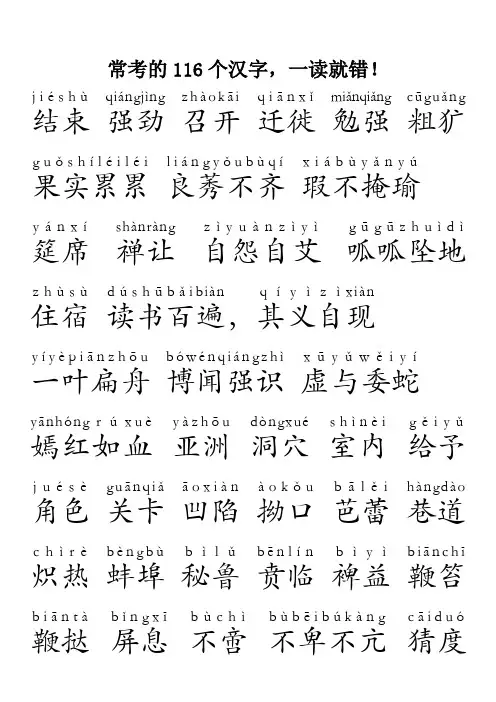 常考的116个汉字，一读就错！
jiéshù qiángjìng zhàokāi qiānxǐ miǎnqiǎng cūguǎng
结束 强劲 召开 迁徙 勉强 粗犷
guǒshíléiléi liángyǒubùqí xiábùyǎnyú
果实累累 良莠不齐 瑕不掩瑜
yánxí shànràng zìyuànzìyì gūgūzhuìdì
筵席 禅让 自怨自艾 呱呱坠地
zhùsù dúshūbǎibiàn qíyìzìxiàn
住宿 读书百遍，其义自现
yíyèpiānzhōu bówénqiángzhì xūyǔwěiyí
一叶扁舟 博闻强识 虚与委蛇
yānhóngrúxuè yàzhōu dòngxué shìnèi gěiyǔ
嫣红如血 亚洲 洞穴 室内 给予
juésè guānqiǎ āoxiàn àokǒu bālěi hàngdào
角色 关卡 凹陷 拗口 芭蕾 巷道
chìrè bèngbù bìlǔ bēnlín bìyì biānchī
炽热 蚌埠 秘鲁 贲临 裨益 鞭笞
biāntà bǐngxī bùchì bùbēibúkàng cāiduó
鞭挞 屏息 不啻 不卑不亢 猜度